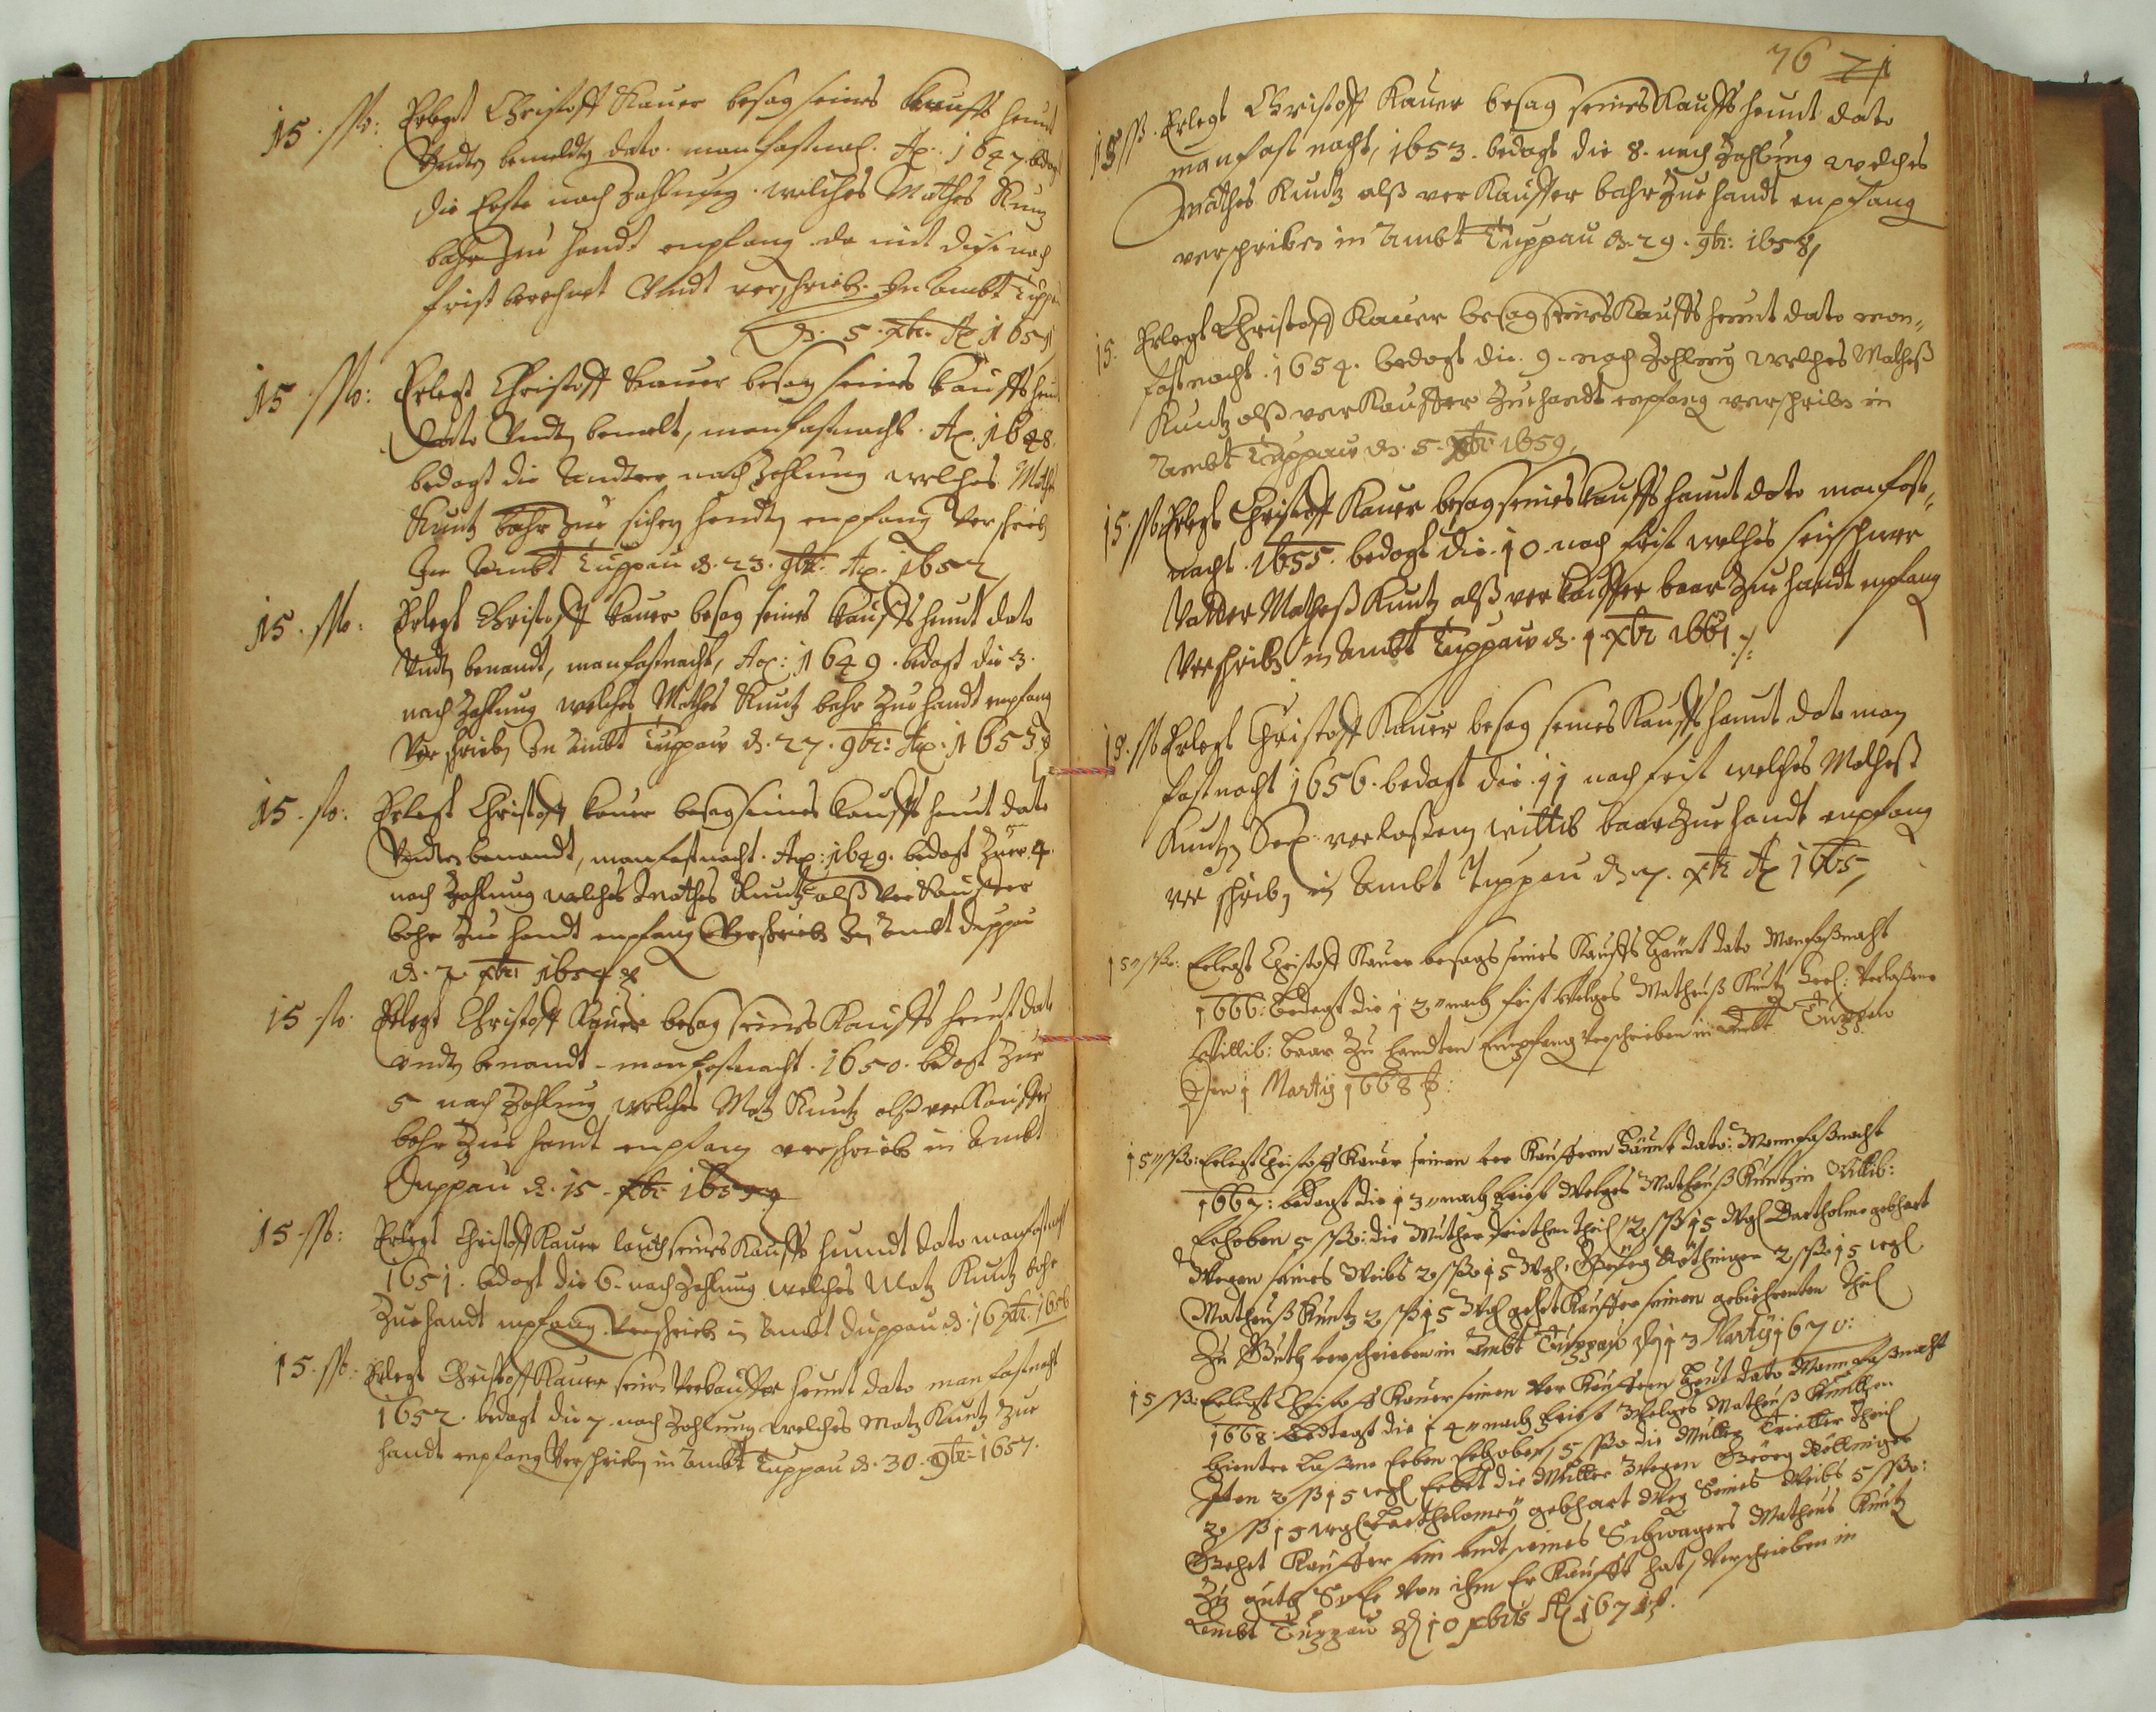 15. ßo: Erlegt Christoff Kauer besag seines Kauffs heunt
Undten bemeldten dato. man fastnach. Ao: 1647. bedagt
die Erste nach Zahlung. welches Mathes Kuntz
bahr Zu handt empfang da mit diese nach
frist berechnet Undt verschrieb. In Ambt Tuppau
d. 5. xbr. Ao 1651
15 ßo: Erlegt Christoff Kauer besag seines Kauffs heunt
Dato Undten bemelt, man fastnacht. Ao. 1648.
bedagt die Andere nach Zahlung welches Mathes
Kuntz bahr Zue sichern handten empfang Verschrieb
In Ambt Tuppau d. 23. 9br. Ao. 1652
15. ßo: Erlegt Christoff Kauer besag seines Kauffs heunt dato
Undten benandt, man fastnacht, Ao: 1649. bedagt die 3.
nach Zahlung welches Mathes Kuntz bahr Zue handt empfang
Verschrieben In Ambt Tuppau d. 27. 9br: Ao: 1653
15. ßo: Erlegt Christoff Kauer besag seines Kauffs heunt dato
Undten benandt, man fastnacht. Ao: 1649. bedagt Zur 4.
nach Zahlung welches Mathes Kuntz alß Verkauffer
bahr Zue handt empfang Verschrieb In Ambt Duppau
d. 2. xbr: 1654
15 ßo. Erlegt Christoff Kauer besag seines Kauffs heunt dato
undten benandt - man fastnacht. 1650. bedagt Zur
5 nach Zahlung welches Matz Kuntz alß verkauffer
bahr Zue handt empfang verschrieb in Ambt
Duppau d. 15. xbr. 1655
15 ßo: Erlegt Christoff Kauer lauth seines Kauffs heundt dato man fastnacht
1651. bedagt die 6. nach Zahlung welches Matz Kuntz bahr
Zue handt empfang Verschrieb in Ambt Duppau d. 16 xbr. 1656
15. ßo: Erlegt Christoff Kauer seinen Verkauffer heunt dato man fastnacht
1652. bedagt die 7. nach Zahlung welches Matz Kuntz Zue
handt empfang Verschrieben in Ambt Tuppau d. 30. 9br: 1657.
76 71
15 ß. Erlegt Christoff Kauer besag seines Kauffs heunt dato
man fast nacht, 1653. bedagt die 8. nach Zahlung welches
Mathes Kuntz alß ver Kauffer bahr Zue handt enpfang
verschriben in Ambt Tuppau d. 29. 9br: 1658,
15. Erlegt Christoff Kauer besag seines Kauffs heunt dato man,,
fastnacht. 1654. bedagt die. 9. nach Zahlung welches Matheß
Kuntz alß verKauffer Zue handt enpfang verschriben in
Ambt Tuppau d. 5. xbr. 1659,
15. ßo. Erlegt Christoff Kauer besag seines kauffs heunt dato man fast,,
nacht. 1655. bedagt die. 10. nach frist welches sein schwer
Vatter Matheß Kuntz alß verkauffer baar Zue handt enpfang
Verschrieb in Ambt Tuppau d. 1 xbr 1661 ./.
15. ßo Erlegt Christoff Kauer besag seines Kauffs heunt dato man
fastnacht 1656. bedagt die. 11 nach frist welches Matheß
Kuntz Seel. verlaßene wittib baar Zue handt enpfang
ver schrieb in Ambt Tuppau d. 7. xbr Ao 1665,
15 ßo: Erlegt Christoff Kauer besags seines Kauffs heunt dato Manfaßnacht
1666: bedagt die 12 nach frist welches Matheuß Kuntz Seel: Verlaßene
Wittib: baar Zu handten Empfang Verschrieben in Ambt Tuppau
Den 1 Martij 1668
15 ßo: Erlegt Christoff Kauer seinen ver Kauffern heunt dato: Mannfaßnacht
1667: bedagt die 13 nach frist Welches Matheuß Kuntzin Wittib:
Erhoben 5 ßo: die Mutter dritten theil 2 ß 15 Wgl Bartholme gebhart
Wegen seines Weibs 2 ßo 15 Wgl, Georg 2 ßo 15 wgl
Matheuß Kuntz 2 ß 15 Wgl gehet Kauffer seinen gebierenten theil
Zu Guth verschrieben in Ambt Tuppau den 13 Martij 1670:
15 ßo: Erlegt Christoff Kauer seinen ver Kauffern heut dato Mannfaßnacht
1668: bedagt die 14 nach frist Welches Matheuß Kuntzen
hienter Laßene Erben Erhoben, 5 ßo die Mutter dritter theil
2 ß 15 wgl Erbet die Mutter Wegen Georg
2 ß 15 wgl Bartholomey gebhart Weg. Seines Weibs 5 ßo:
Gehet Kauffer seines Schwagers Matheus Kuntz
Zu guth So Er Von ihm Er Kaufft hat, Verschrieben in
Ambt Tuppau den 10 xbris Ao 1671